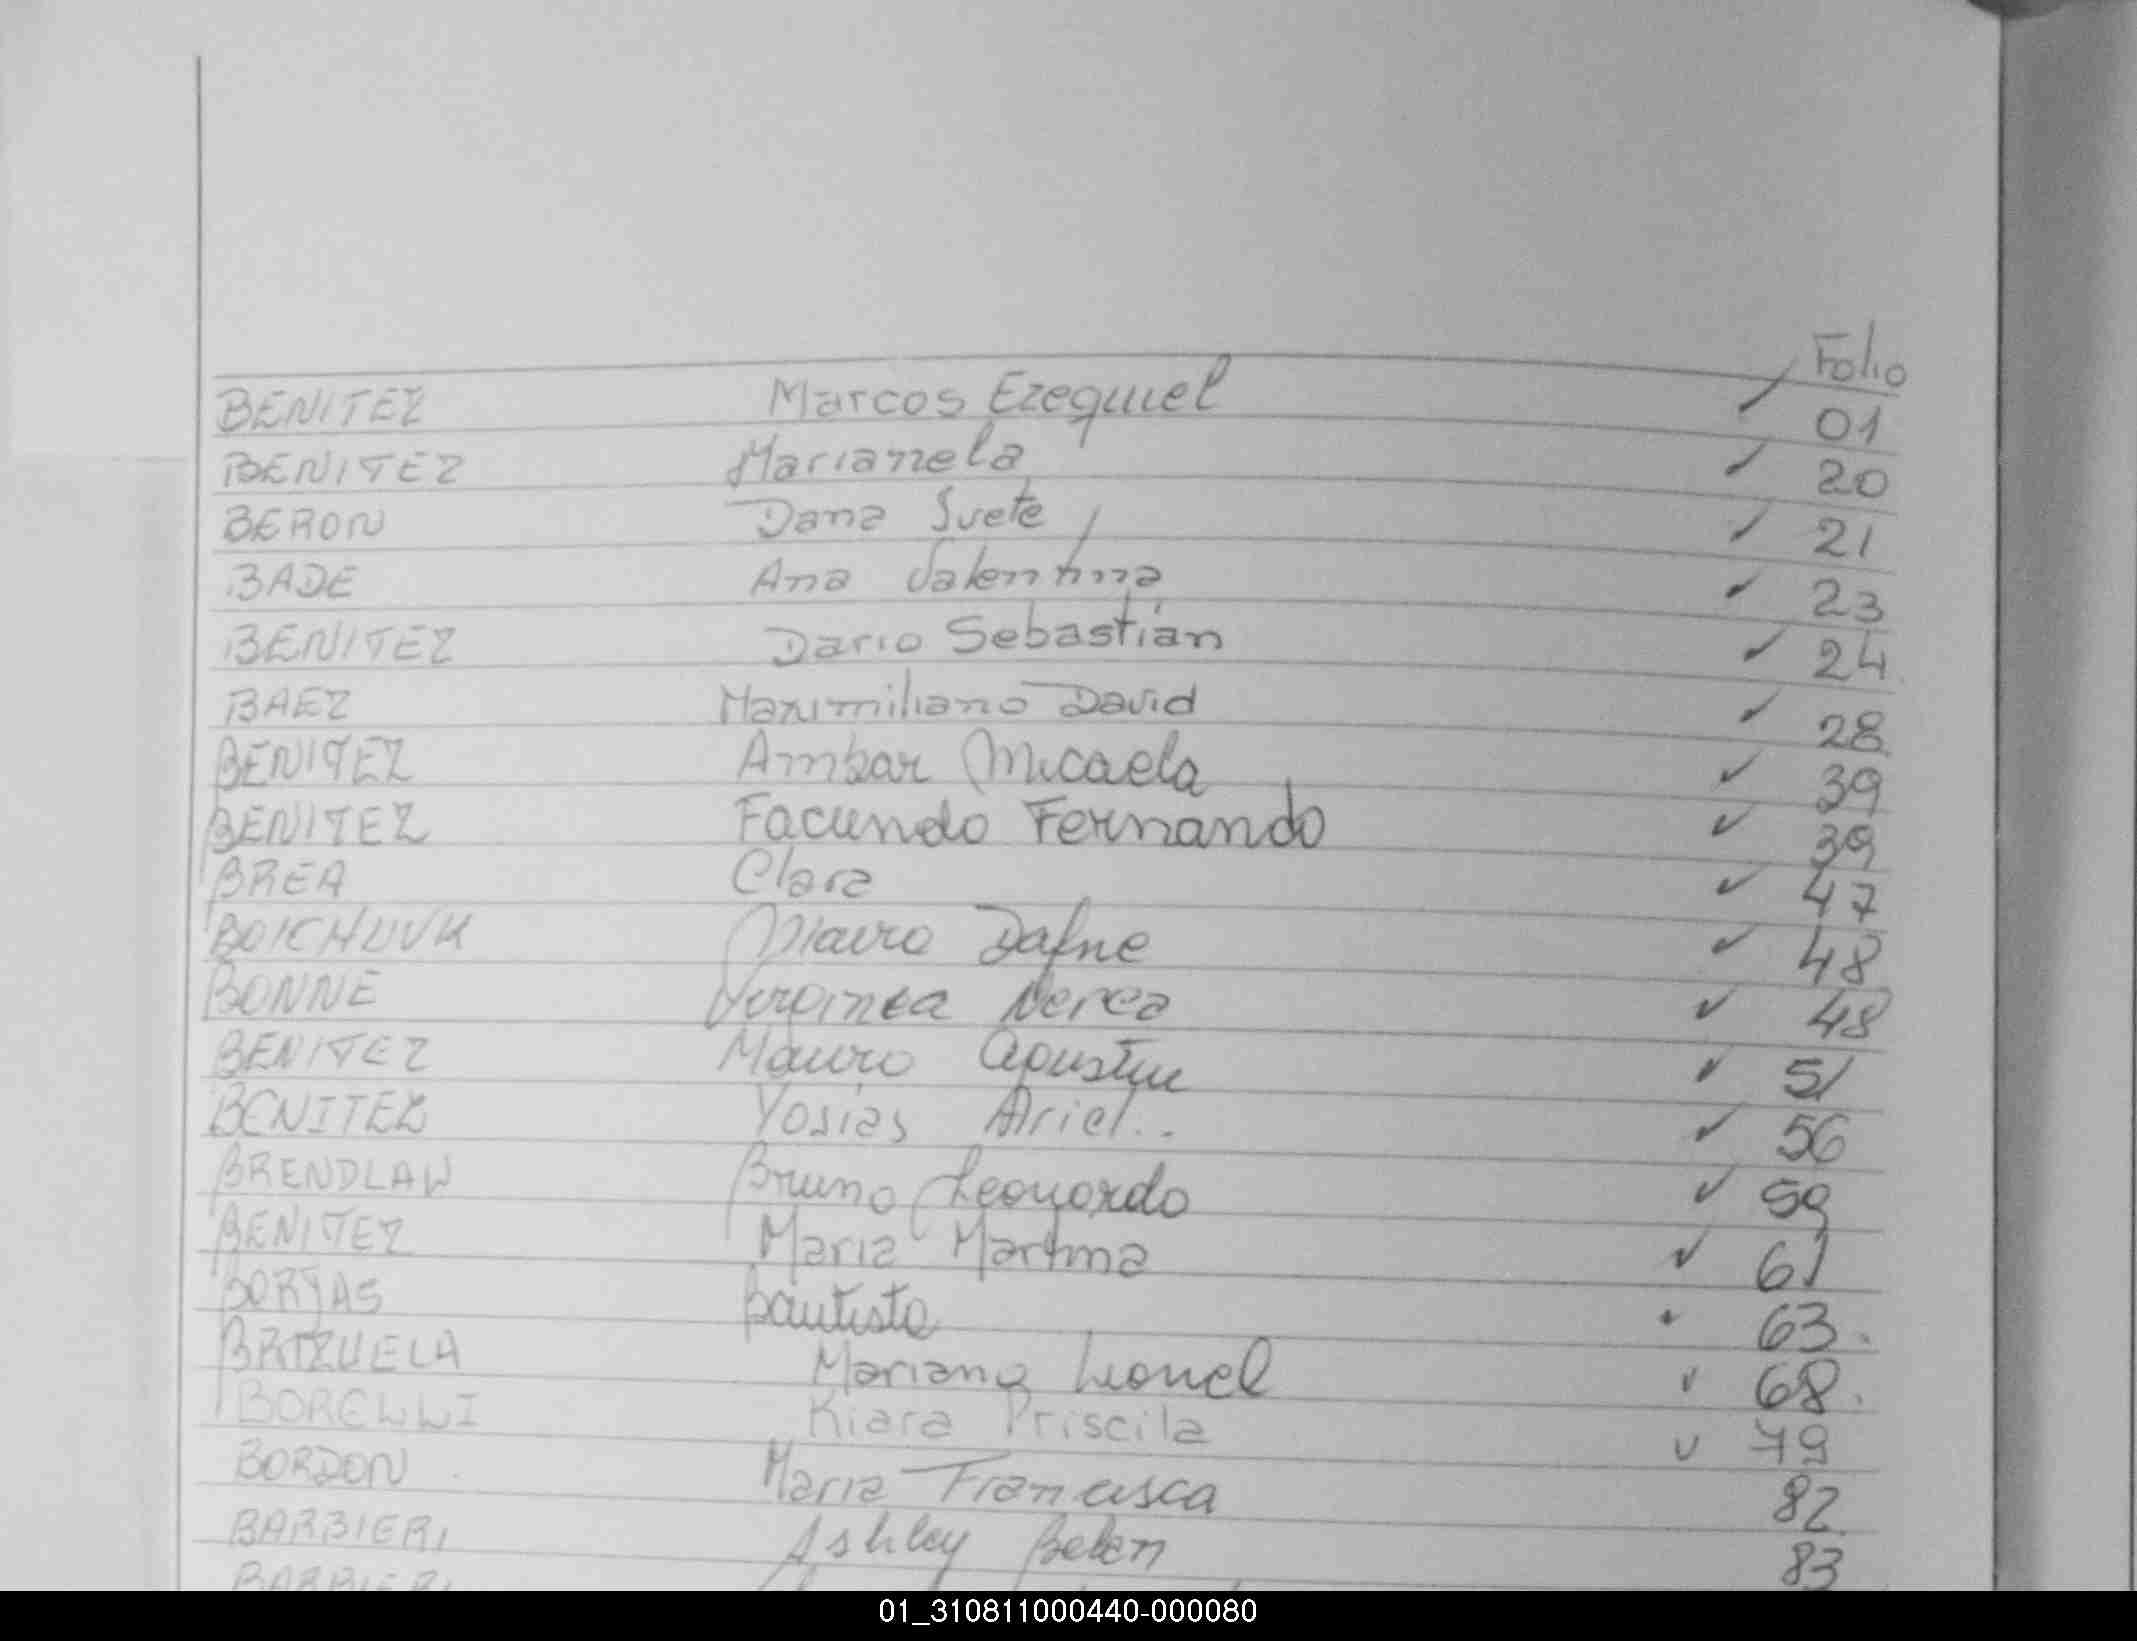 Folio
BENITEZ Marcos Ezequiel ✓ 01
BENITEZ Marianela ✓ 20
BERON Dana Ivete ✓ 21
BADE Ana Valentina ✓ 23
BENITEZ Dario Sebastián ✓ 24
BAEZ Maximiliano David ✓ 28
BENITEZ Ambar Micaela ✓ 39
BENITEZ Facundo Fernando ✓ 39
BREA Clara ✓ 47
Dafne ✓ 48
BONNE Nerea ✓ 48
BENITEZ Mauro Agustin ✓ 51
BENITEZ Yosias Ariel.. ✓ 56
Bruno Leonardo ✓ 59
BENITEZ Maria Martina ✓ 61
BORJAS Bautista 63
BRIZUELA Mariano Lionel ✓ 68
BORELLI Kiara Priscila ✓ 79
BORDON Maria Francisca 82
BARBIERI Ashley Belen 83
BARBIERI
01_310811000440-000080